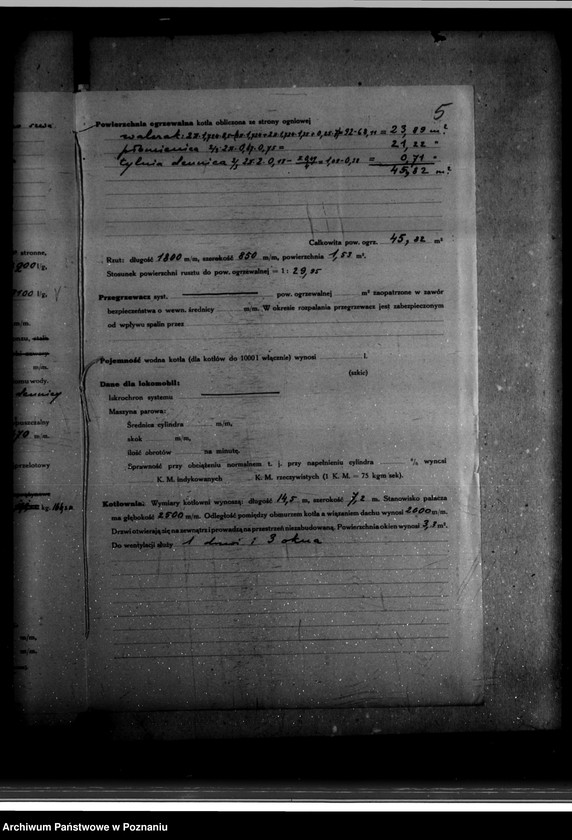 5
Powierzchnia ogrzewalna kotła obliczona ze strony ogniowej
walczak: = 23,89 m²
płomienica = 21,22 "
tylnia dennica = 0,71 "
45,82 m²
Całkowita pow. ogrz. 45,82 m²
Rzut: długość 1800 m/m, szerokość 850 m/m, powierzchnia 1,53 m².
Stosunek powierzchni rusztu do pow. ogrzewalnej = 1 : 29,95
Przegrzewacz syst. pow. ogrzewalnej m² zaopatrzone w zawór
bezpieczeństwa o wewn. średnicy m/m. W okresie rozpalania przegrzewacz jest zabezpieczonym
od wpływu spalin przez
Pojemność wodna kotła (dla kotłów do 1000 l włącznie) wynosi l.
(szkic)
Dane dla lokomobil:
Iskrochron systemu
Maszyna parowa:
Średnica cylindra m/m,
skok m/m,
ilość obrotów na minutę.
Sprawność przy obciążeniu normalnem t. j. przy napełnieniu cylindra % wynosi
K. M. indykowanych K. M. rzeczywistych (1 K. M. — 75 kgm/sek).
Kotłownia: Wymiary kotłowni wynoszą: długość 14,5 m, szerokość 7,2 m. Stanowisko palacza
ma głębokość 2500 m/m. Odległość pomiędzy obmurzem kotła a wiązaniem dachu wynosi 2000 m/m.
Drzwi otwierają się na zewnątrz i prowadzą na przestrzeń niezabudowaną. Powierzchnia okien wynosi 3,8 m².
Do wentylacji służy 1 drzwi i 3 okna
stronne,
m/m.
wody.
dennicy
m/m.
kg.
m/m,
m/m.
Archiwum Państwowe w Poznaniu